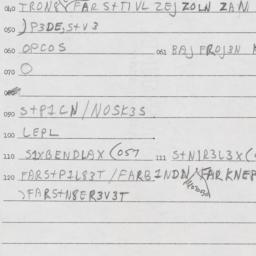 040 TRON8YFARS+TIVL ZEJ ZOLN ZAN
050 )P3DE,S+V3
060 OPCOS 061 BAJ FROJ3N
070 O
080
090 S+P1CN/NOSK3S
100 LEPL
110 S1XBENDLAX(057 111 S+N1R3L3X(
120 FARS+P1L83T/FARB1NDN/FARKNEP
)FARS+N8ER3V3T